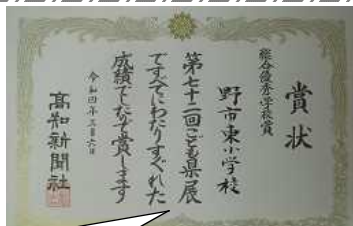 賞状
総合優秀学校賞
野市東小学校
第七十二回こども県展
ですべてにわたりすぐれた
成績でしたので賞します
令和四年三月六日
高知新聞社